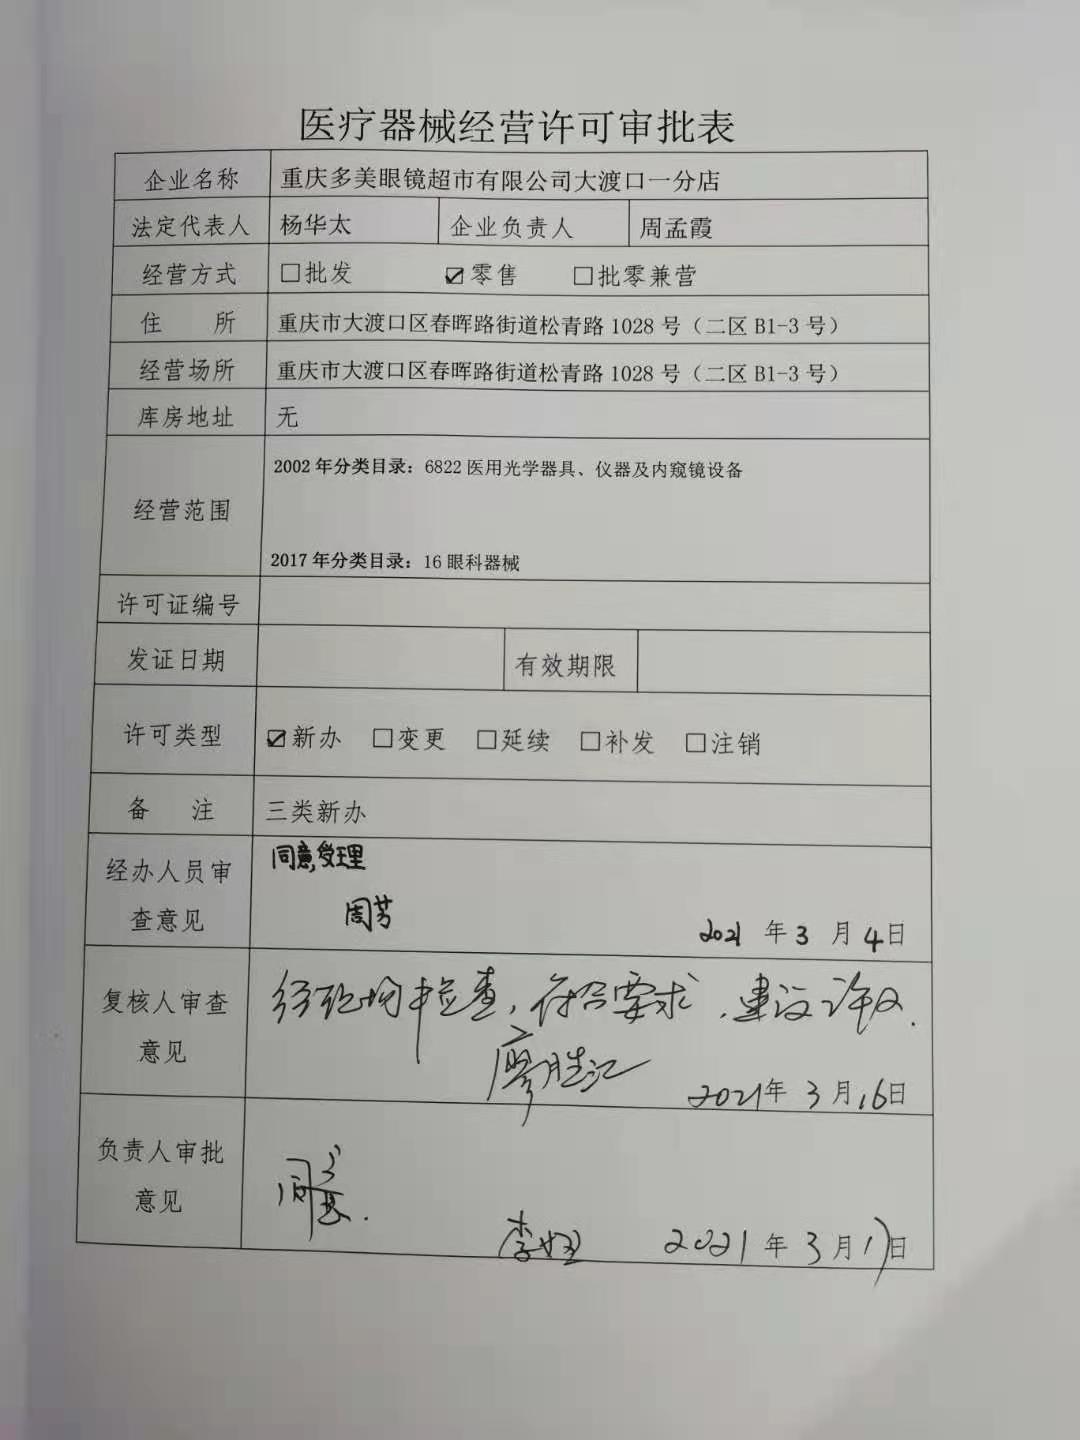 医疗器械经营许可审批表
企业名称 重庆多美眼镜超市有限公司大渡口一分店
法定代表人 杨华太 企业负责人 周孟霞
经营方式 □批发 ☑零售 □批零兼营
住 所 重庆市大渡口区春晖路街道松青路 1028 号（二区 B1-3 号）
经营场所 重庆市大渡口区春晖路街道松青路 1028 号（二区 B1-3 号）
库房地址 无
经营范围
2002 年分类目录：6822 医用光学器具、仪器及内窥镜设备
2017 年分类目录：16 眼科器械
许可证编号
发证日期 有效期限
许可类型 ☑新办 □变更 □延续 □补发 □注销
备 注 三类新办
经办人员审
查意见
同意受理
周芳
2021 年 3 月 4日
复核人审查
意见
经现场检查，符合要求，建议许可.
廖胜江
2021年 3 月16日
负责人审批
意见
同意.
李
2021 年 3 月17日